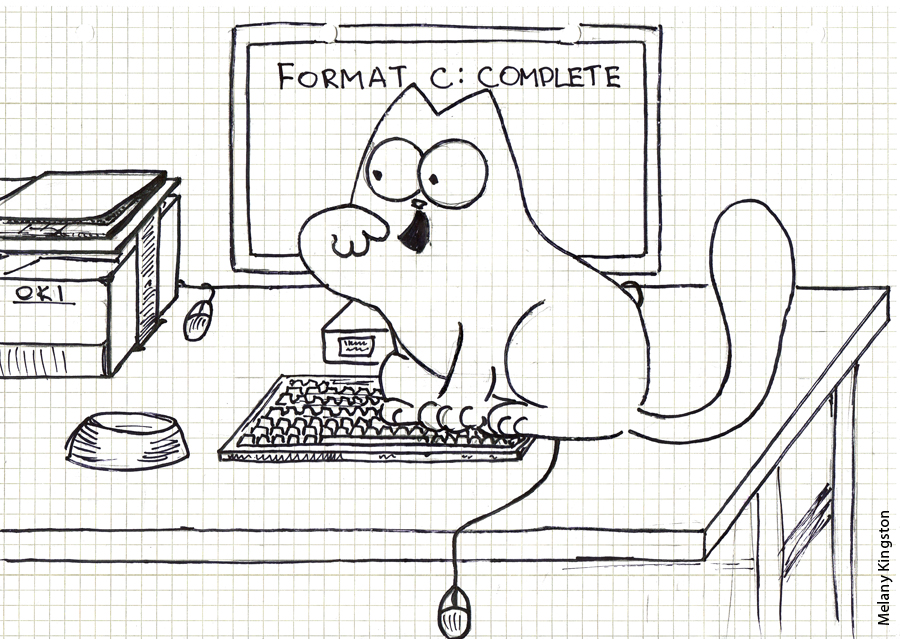 FORMAT C: COMPLETE
OKI
Melany Kingston